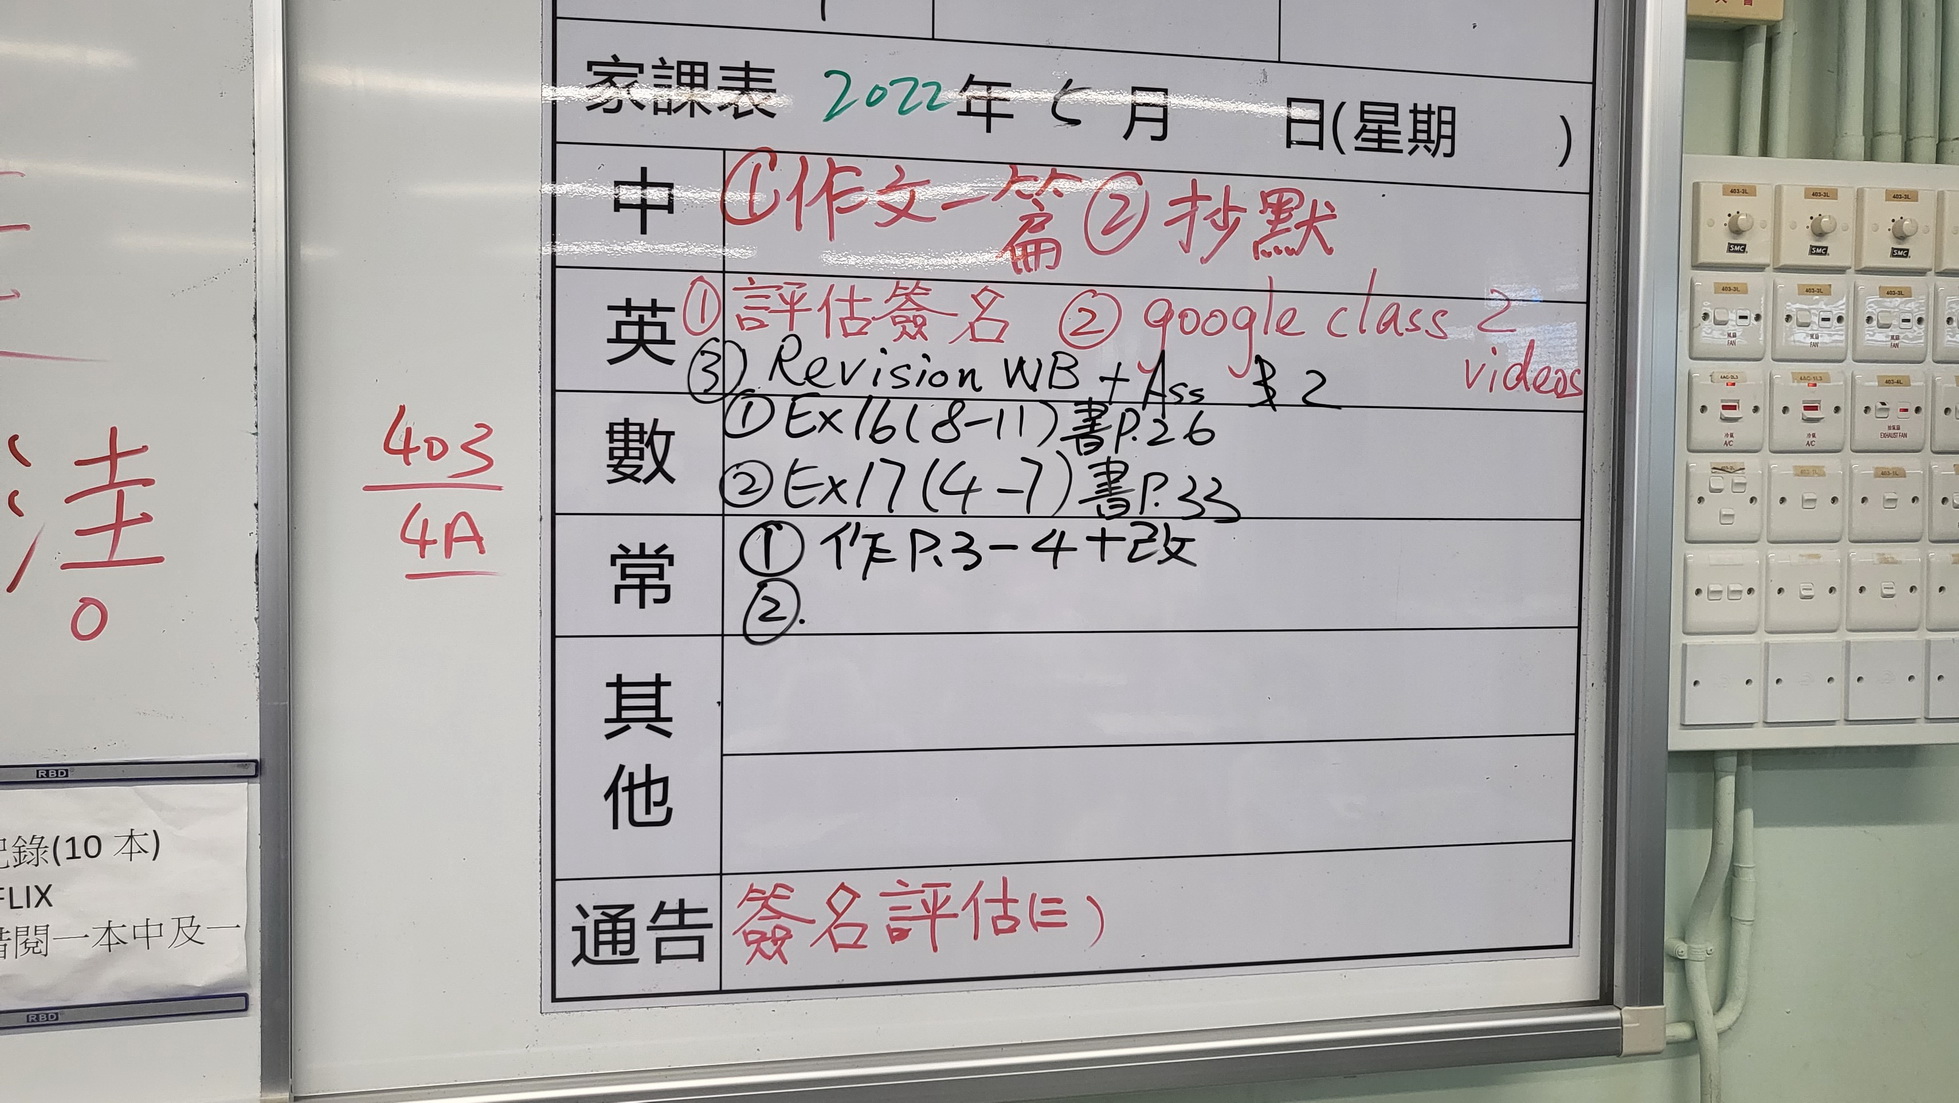 家課表 2022年 5 月 日(星期 )
中 ①作文一篇 ②抄默
英 ①評估簽名 ② google class 2 videos
③ Revision WB + Ass $ 2
數 ① Ex16(8-11)書P.26
② Ex17(4-7)書P.33
常 ① 作P.3-4+改
②.
其他
通告 簽名評估(三)
403
4A
洼
0
RBD
記錄(10 本)
FLIX
借閱一本中及一
RBD
403-3L 403-3L 403-3L
SMC SMC SMC
403-3L 403-3L 403-3L
風扇 FAN 風扇 FAN 風扇 FAN
4AC-1L3 4AC-1L3 403-4L
冷氣 A/C 冷氣 A/C 抽氣扇 EXHAUST FAN